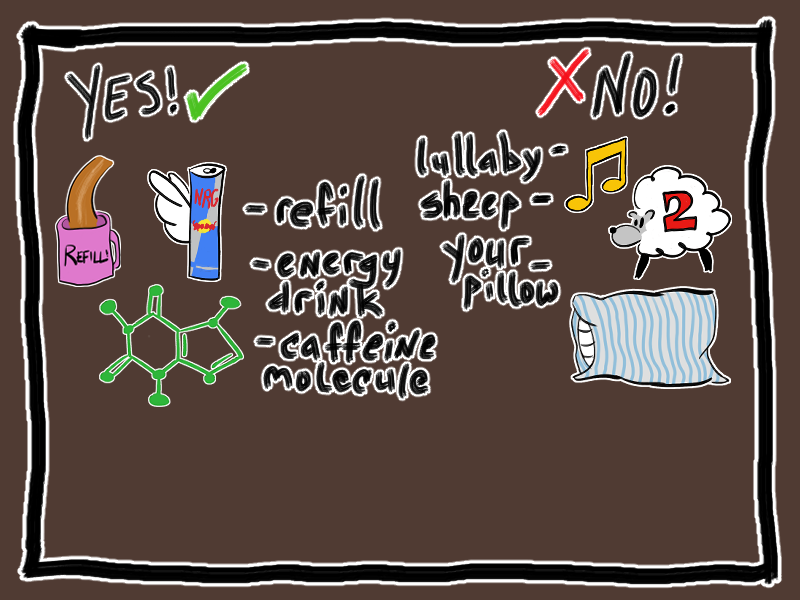 YES!
NO!
REFILL!
NRG
-refill
-energy
drink
-caffeine
molecule
lullaby-
sheep-
your-
pillow
2